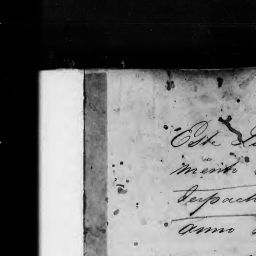 Este
mento
despach
anno